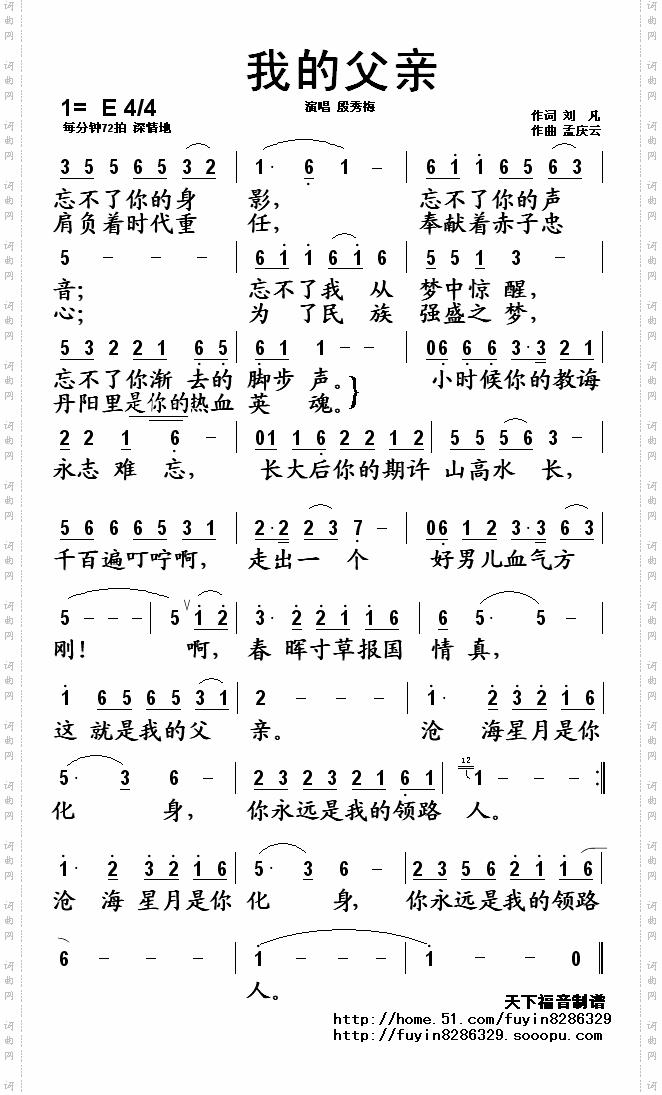 我的父亲
1= E 4/4
演唱 殷秀梅
每分钟72拍 深情地
作词 刘 凡
作曲 孟庆云
3 5 5 6 5 3 2 | 1· 6 1 - | 6 1 1 6 5 6 3
忘不了你的身 影, 忘不了你的声
肩负着时代重 任, 奉献着赤子忠
5 - - - | 6 1 1 6 1 6 | 5 5 1 3 -
音; 忘不了我 从 梦中惊 醒,
心; 为 了民 族 强盛之 梦,
5 3 2 2 1 6 5 | 6 1 1 - - | 06 6 6 3·3 2 1
忘不了你渐 去的 脚步 声。 小时候你的教诲
丹阳里是你的热血 英 魂。
2 2 1 6 - | 01 1 6 2 2 1 2 | 5 5 5 6 3 -
永志 难 忘, 长大后你的期许 山高水 长,
5 6 6 6 5 3 1 | 2·2 2 3 7 - | 06 1 2 3·3 6 3
千百遍叮咛啊, 走出一 个 好男儿血气方
5 - - - | 5 V 1 2 | 3· 2 2 1 1 6 | 6 5· 5 -
刚! 啊, 春 晖寸草报国 情 真,
1 6 5 6 5 3 1 | 2 - - - | 1· 2 3 2 1 6
这 就是我的父 亲。 沧 海星月是你
5· 3 6 - | 2 3 2 3 2 1 6 1 | 12 1 - - - :||
化 身, 你永远是我的领路 人。
1· 2 3 2 1 6 | 5· 3 6 - | 2 3 5 6 2 1 6
沧 海 星月是你 化 身, 你永远是我的领路
6 - - - | 1 - - - | 1 - - 0 ||
人。
天下福音制谱
http://home.51.com/fuyin8286329
http://fuyin8286329.sooopu.com